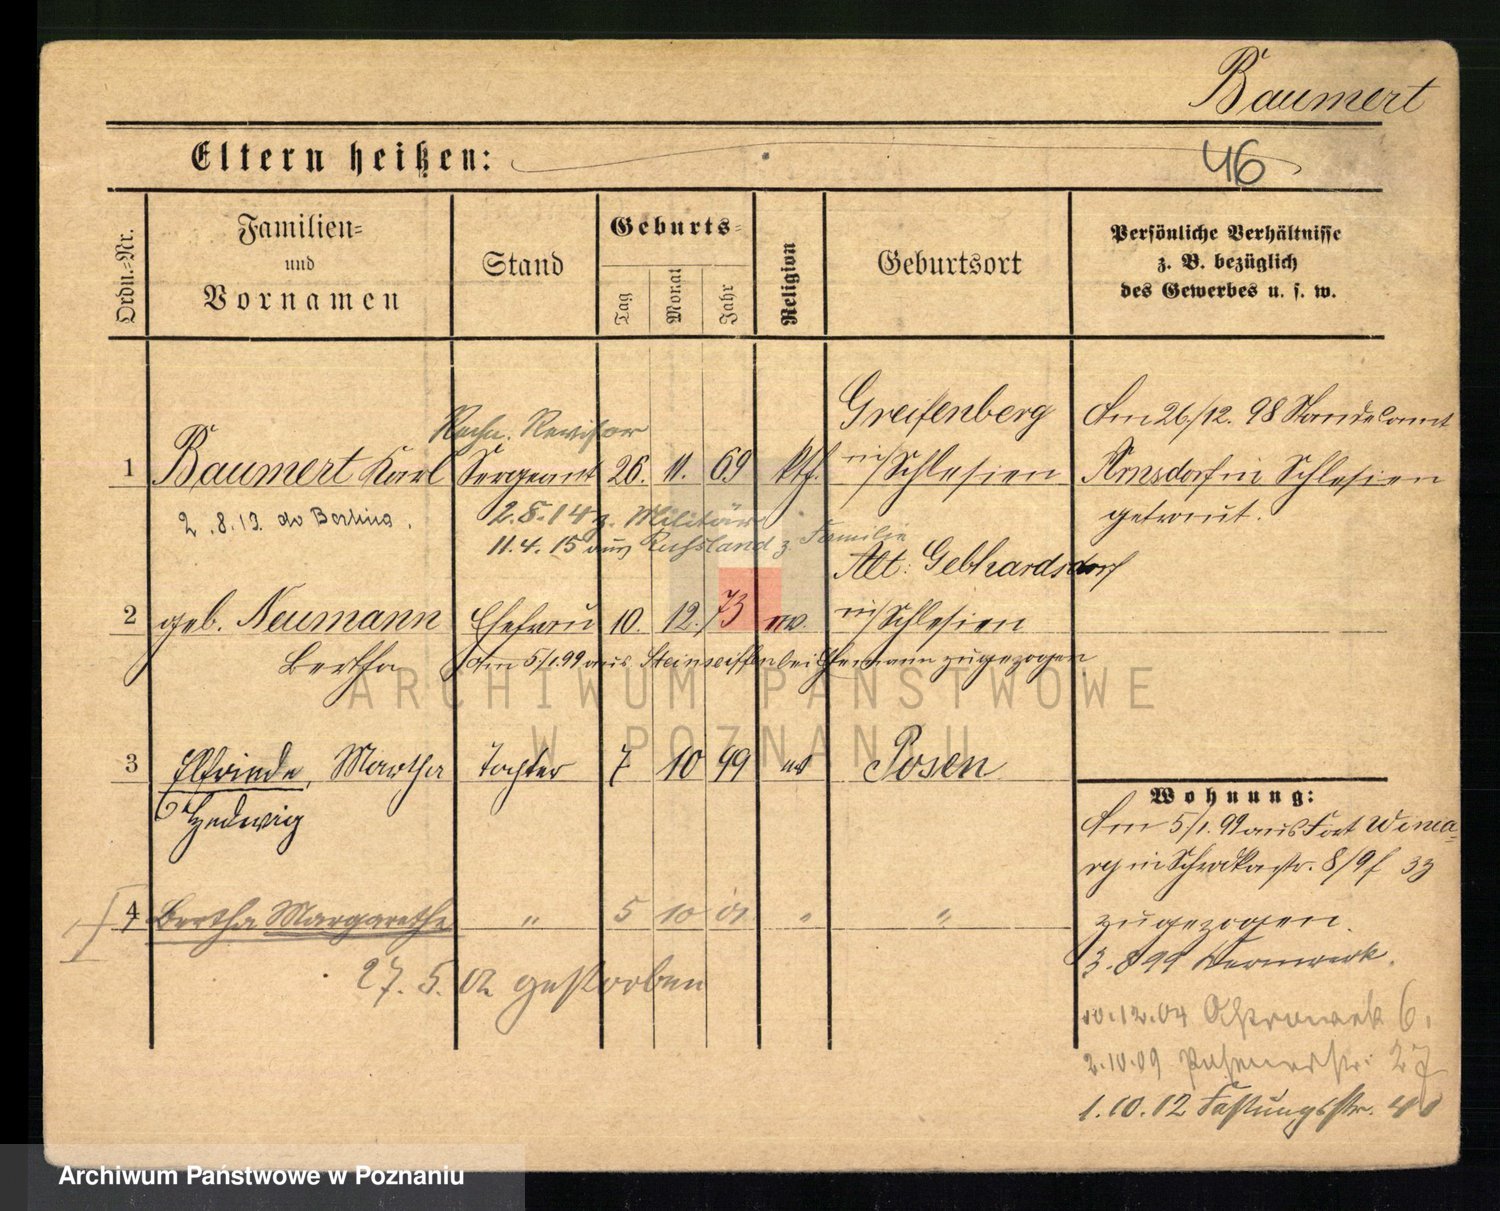 Baumert
Eltern heißen:
46
Ordn.-Nr.
Familien-
und
Vornamen
Stand
Geburts-
Tag
Monat
Jahr
Religion
Geburtsort
Persönliche Verhältnisse
z. B. bezüglich
des Gewerbes u. s. w.
Rechn. Revisor
1 Baumert Karl Sergeant 26. 11. 69 kth.
Greifenberg
in/Schlesien
Am 26/12. 98 Standesamt
Arnsdorf in Schlesien
getraut.
2.8.13. do
2.8.14 z. Militär
11.4.15 aus Russland z Familie
2 geb. Neumann Ehefrau 10. 12. 73 ev.
Bertha
Alt: Gebhardsdorf
in/Schlesien
Am 5/1.99 aus Steinseiffen bei zugezogen
3 Elfriede, Martha Tochter 7 10 99 ev Posen
Hedwig
4 Bertha Margarethe " 5 10 01 " "
27. 5. 02 gestorben
Wohnung:
Am 5/1. 99 aus Fort Winia-
ry in Schrodkastr. 8/9 f 33
zugezogen.
3.8 99
10.12.04 Ostrowek 6.
2.10.09 Posenerstr. 27
1.10.12 Festungsstr.
ARCHIWUM PAŃSTWOWE
W POZNANIU
Archiwum Państwowe w Poznaniu